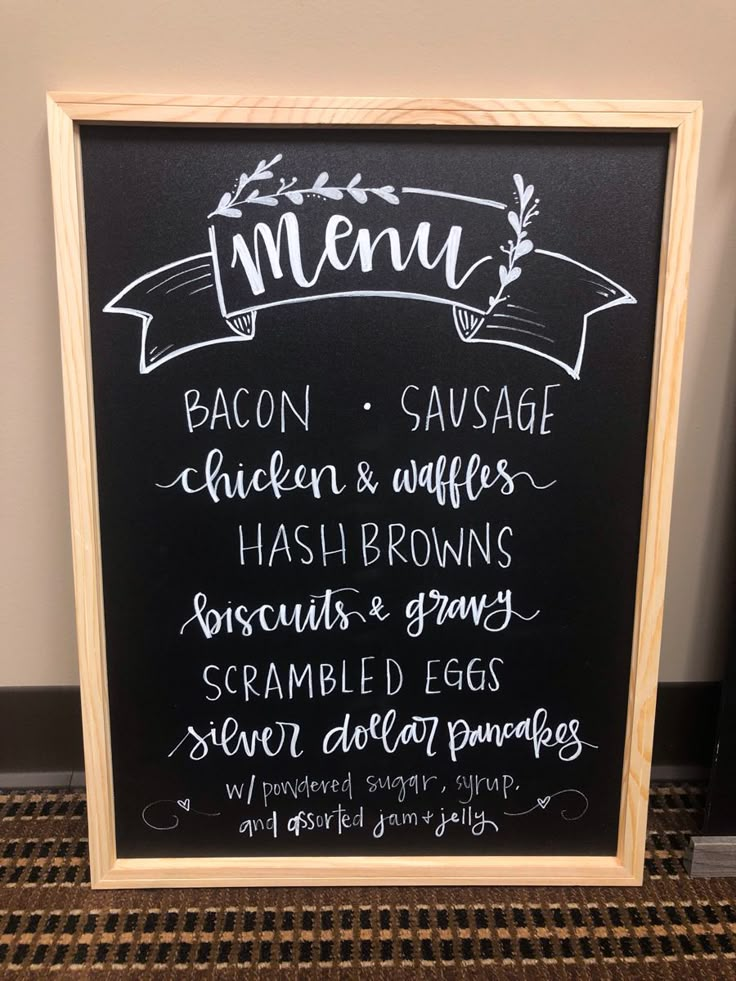 menu
BACON • SAUSAGE
chicken & waffles
HASHBROWNS
biscuits & gravy
SCRAMBLED EGGS
silver dollar pancakes
w/ powdered sugar, syrup,
and assorted jam + jelly